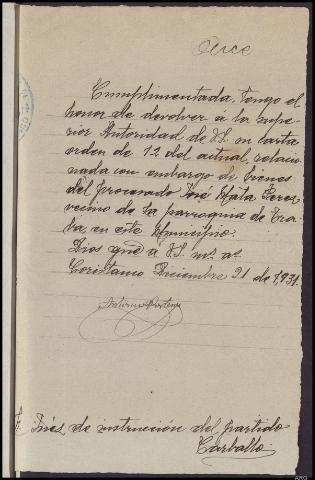 Cumplimentada, tengo el
honor de devolver á la supe-
rior Autoridad de V.S. su carta
orden de 12 del actual, relacio-
nada con embargo de bienes
del procesado José Mata Peres
vecino de la parroquia de Tra-
ba, en este Municipio.
Dios gue á V.S. ms. as.
Coristanco Diciembre 21 de 1,931.
Antonio
Sr. Jués de instrucción del partido
Carballo.